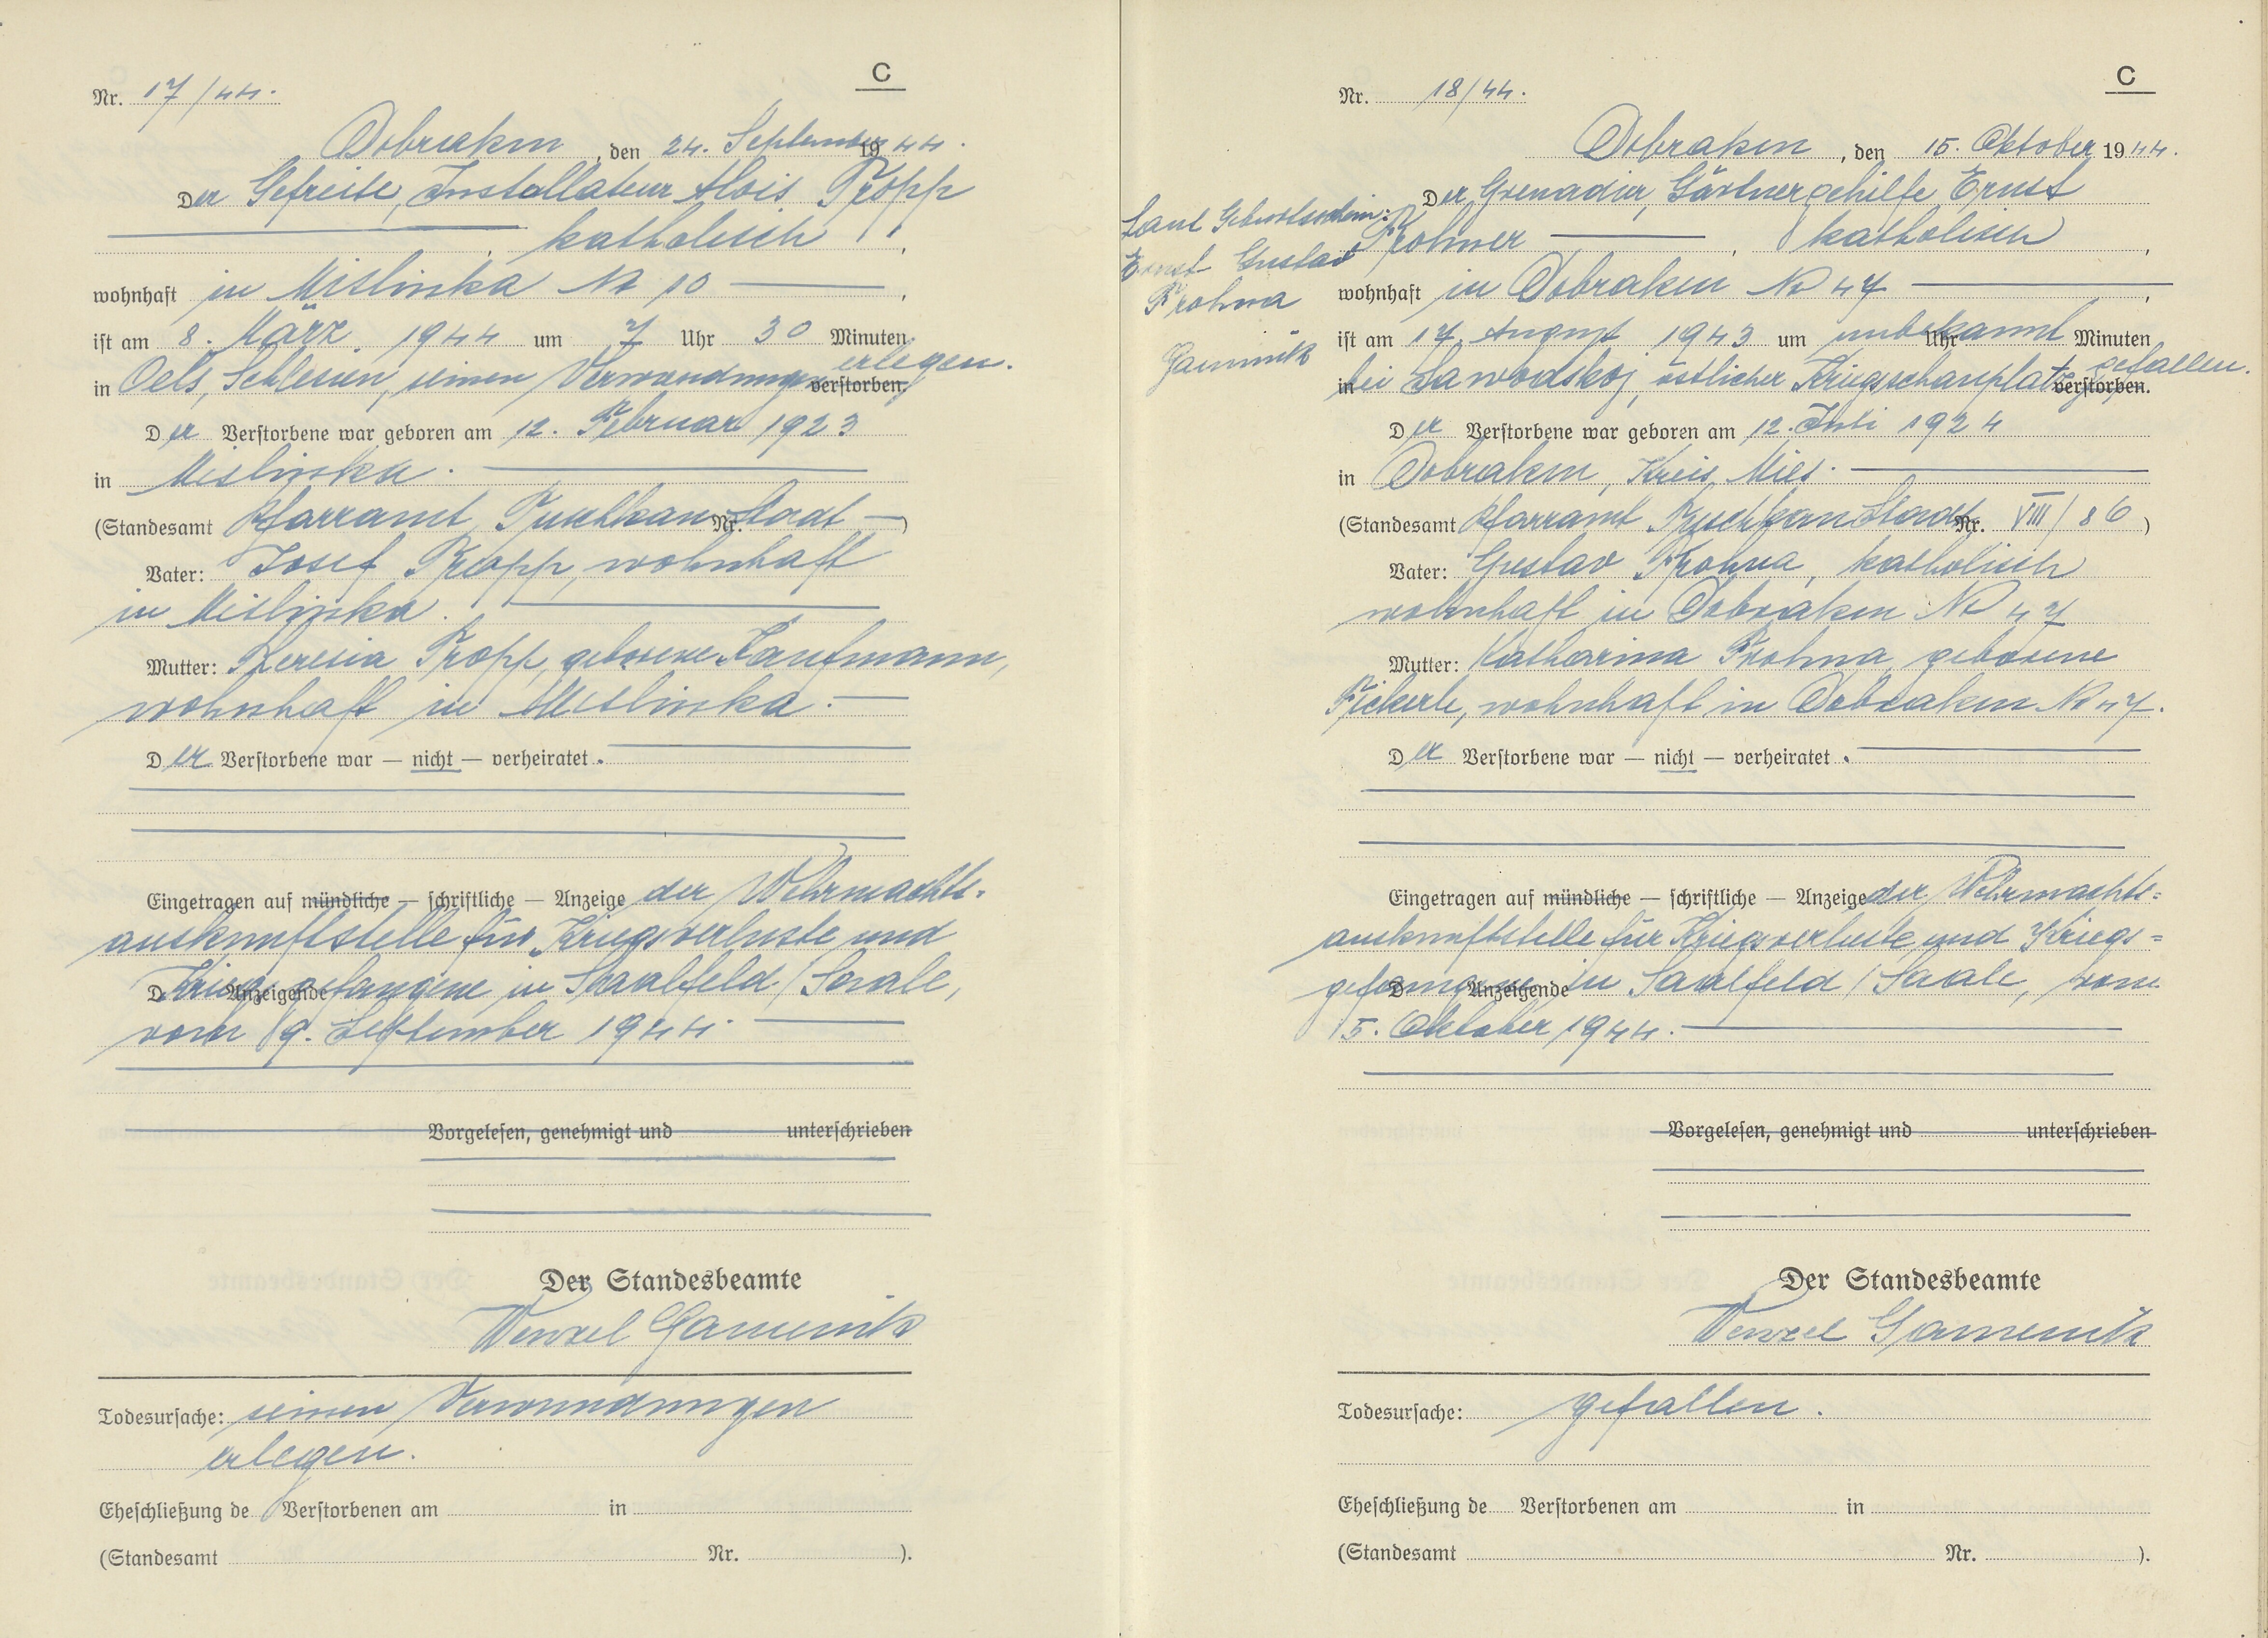 C
Nr. 17/44.
Dobraken, den 24. September 1944.
Der Gefreite, Installateur Alois Propp
, katholisch,
wohnhaft in Mislinka No 10,
ist am 8. März 1944 um 7 Uhr 30 Minuten
in Oels, Schlesien, seinen Verwundungen verstorben. erlegen.
Der Verstorbene war geboren am 12. Februar 1923
in Mislinka.
(Standesamt Pfarramt Tuschkau Stadt Nr. )
Vater: Josef Propp, wohnhaft
in Mislinka.
Mutter: Theresia Propp, geborene Kaufmann,
wohnhaft in Mislinka.
Der Verstorbene war — nicht — verheiratet.
Eingetragen auf mündliche — schriftliche — Anzeige der Wehrmachts=
auskunftstelle für Kriegsverluste und
D Anzeigende Kriegsgefangene in Saalfeld/Saale,
vom 9. September 1944.
Vorgelesen, genehmigt und unterschrieben
Der Standesbeamte
Wenzel
Todesursache: seinen Verwundungen
erlegen.
Eheschließung de Verstorbenen am in
(Standesamt Nr. ).
C
Nr. 18/44.
Dobraken, den 15. Oktober 1944.
Der Grenadier, Gärtnergehilfe Ernst
Prohner, katholisch,
Laut Geburtsschein:
Ernst Gustav
Prohna
wohnhaft in Dobraken No 47,
ist am 17. August 1943 um unbekannt Uhr Minuten
in bei Sawodskoj, östlicher Kriegsschauplatz, verstorben. gefallen.
Der Verstorbene war geboren am 12. Juli 1924
in Dobraken, Kreis Mies.
(Standesamt Pfarramt Tuschkau Stadt Nr. VIII/86)
Vater: Gustav Prohna, katholisch
wohnhaft in Dobraken No 47
Mutter: Katharina Prohna, geborene
wohnhaft in Dobraken No 47.
Der Verstorbene war — nicht — verheiratet.
Eingetragen auf mündliche — schriftliche — Anzeige der Wehrmachts=
auskunftstelle für Kriegsverluste und Kriegs=
D Anzeigende gefangene in Saalfeld/Saale, vom
5. Oktober 1944.
Vorgelesen, genehmigt und unterschrieben
Der Standesbeamte
Wenzel
Todesursache: gefallen.
Eheschließung de Verstorbenen am in
(Standesamt Nr. ).